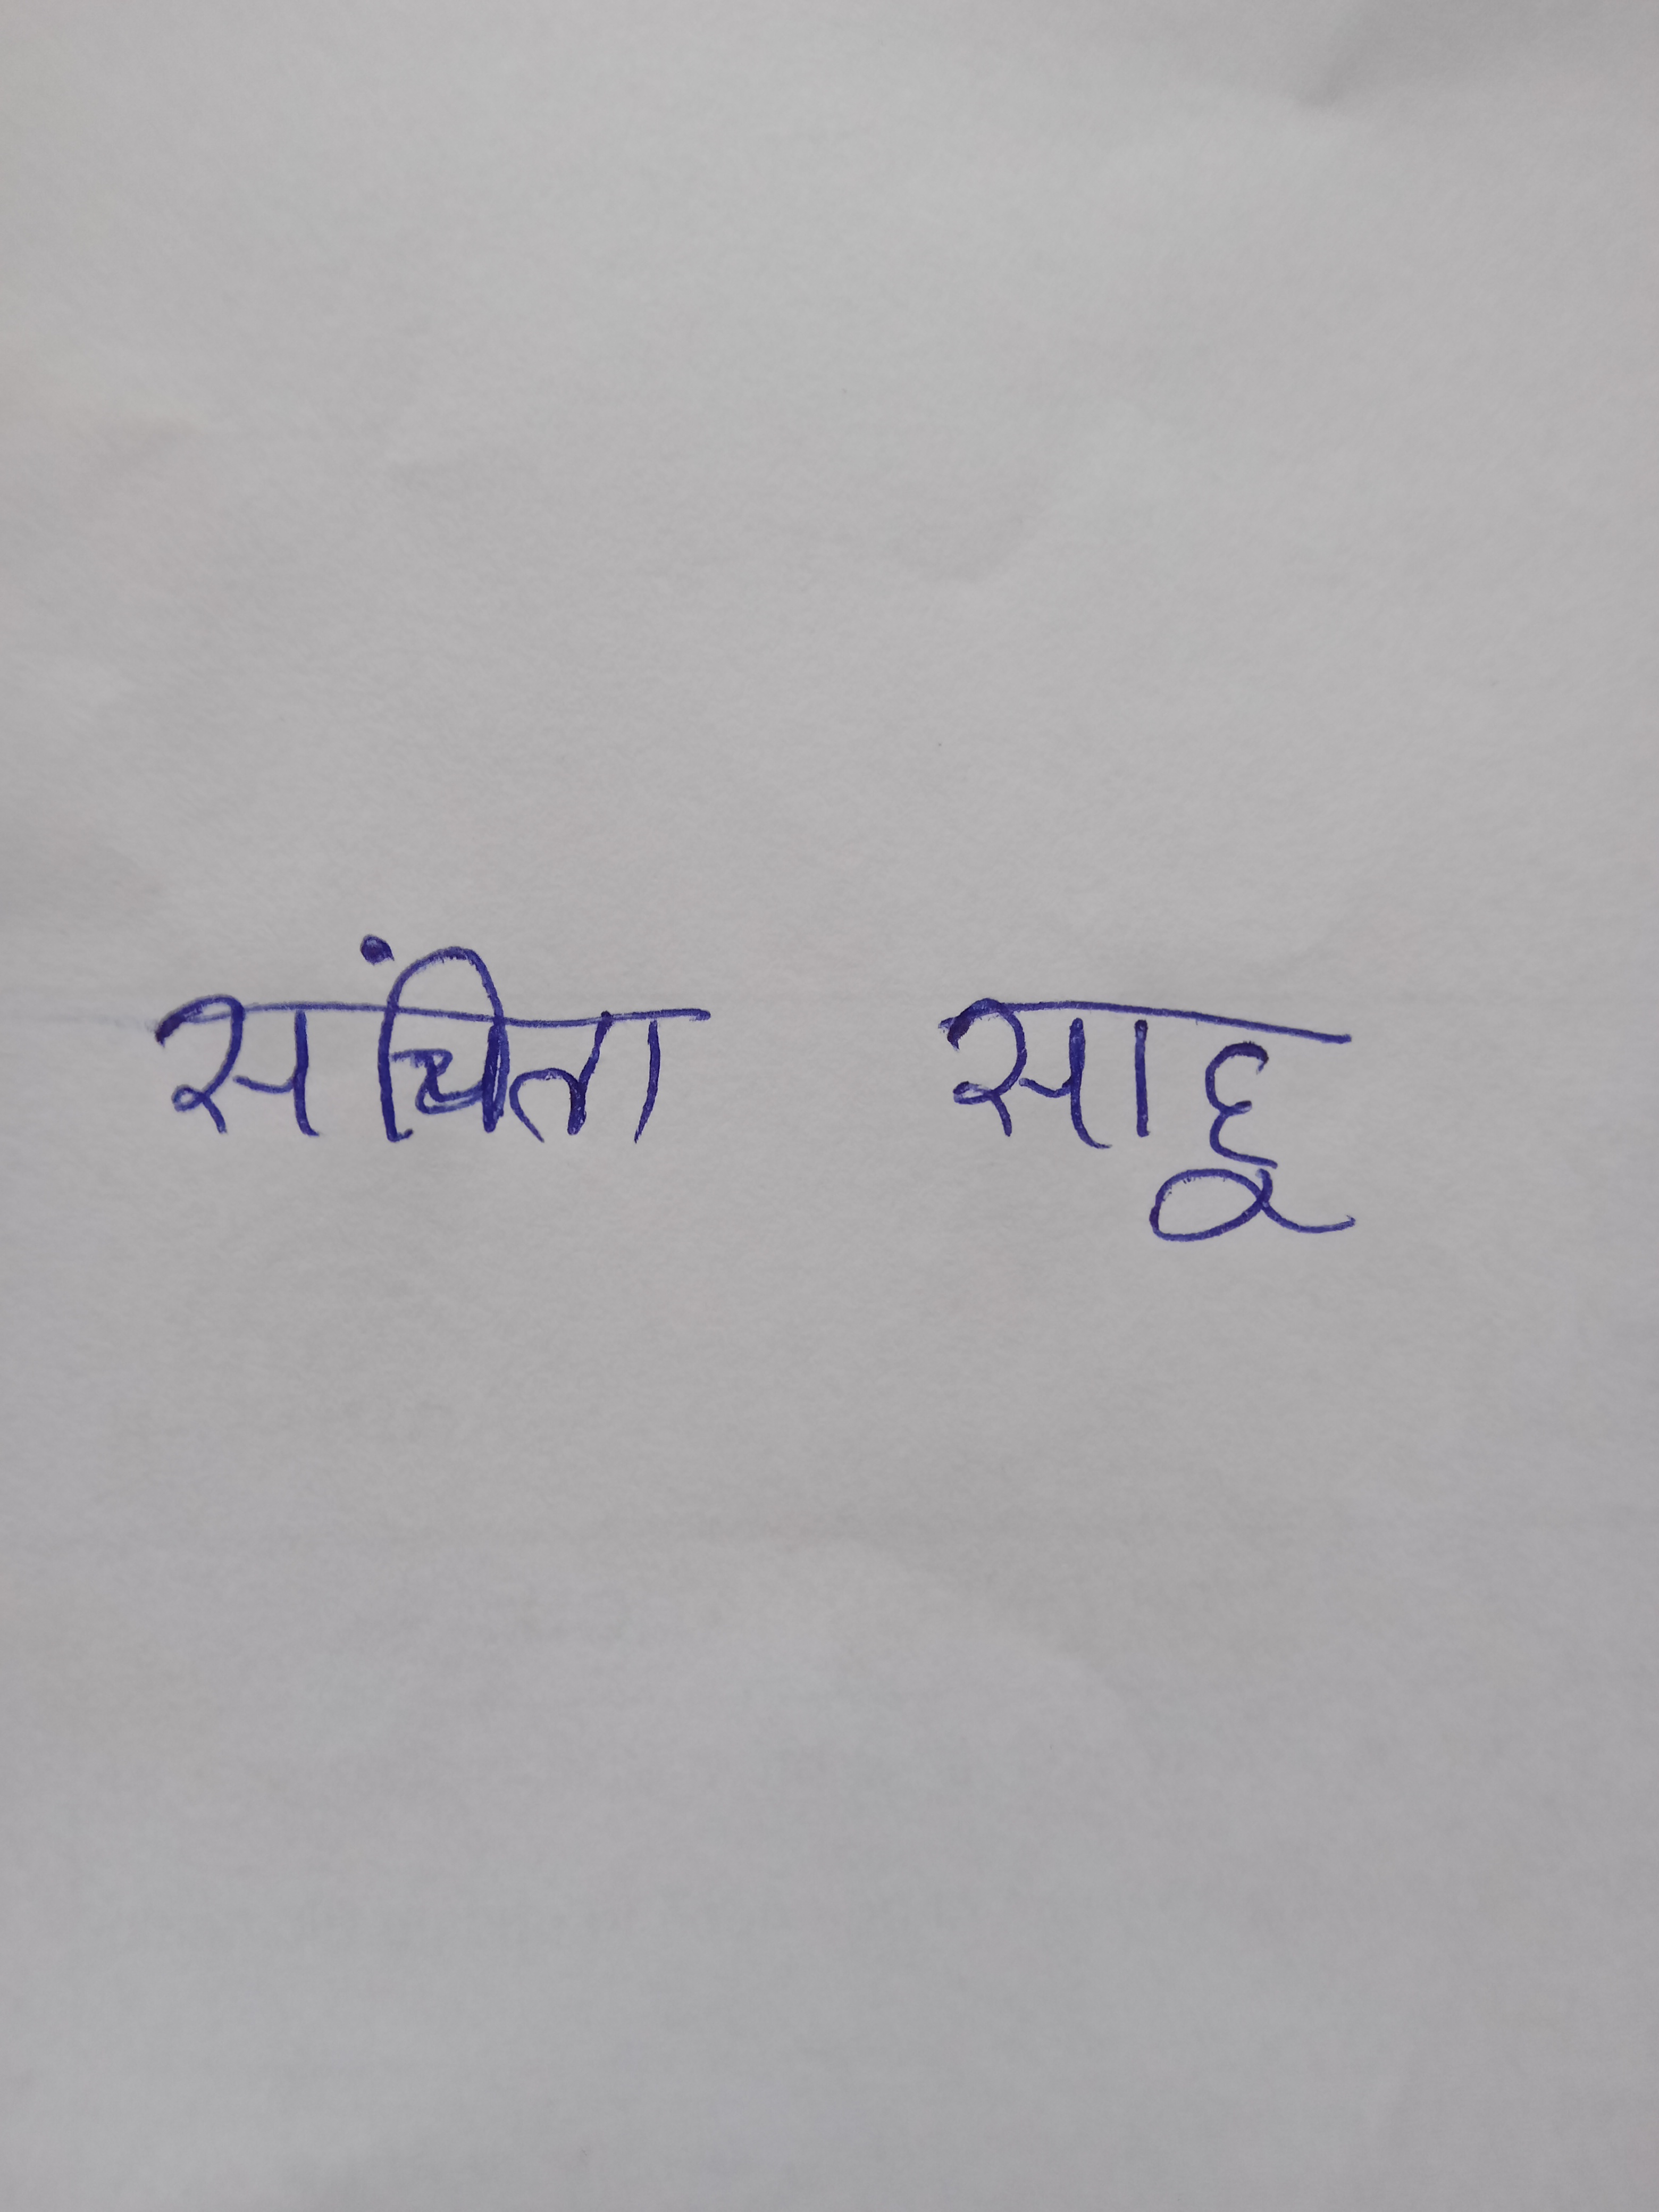 संचिता साहू